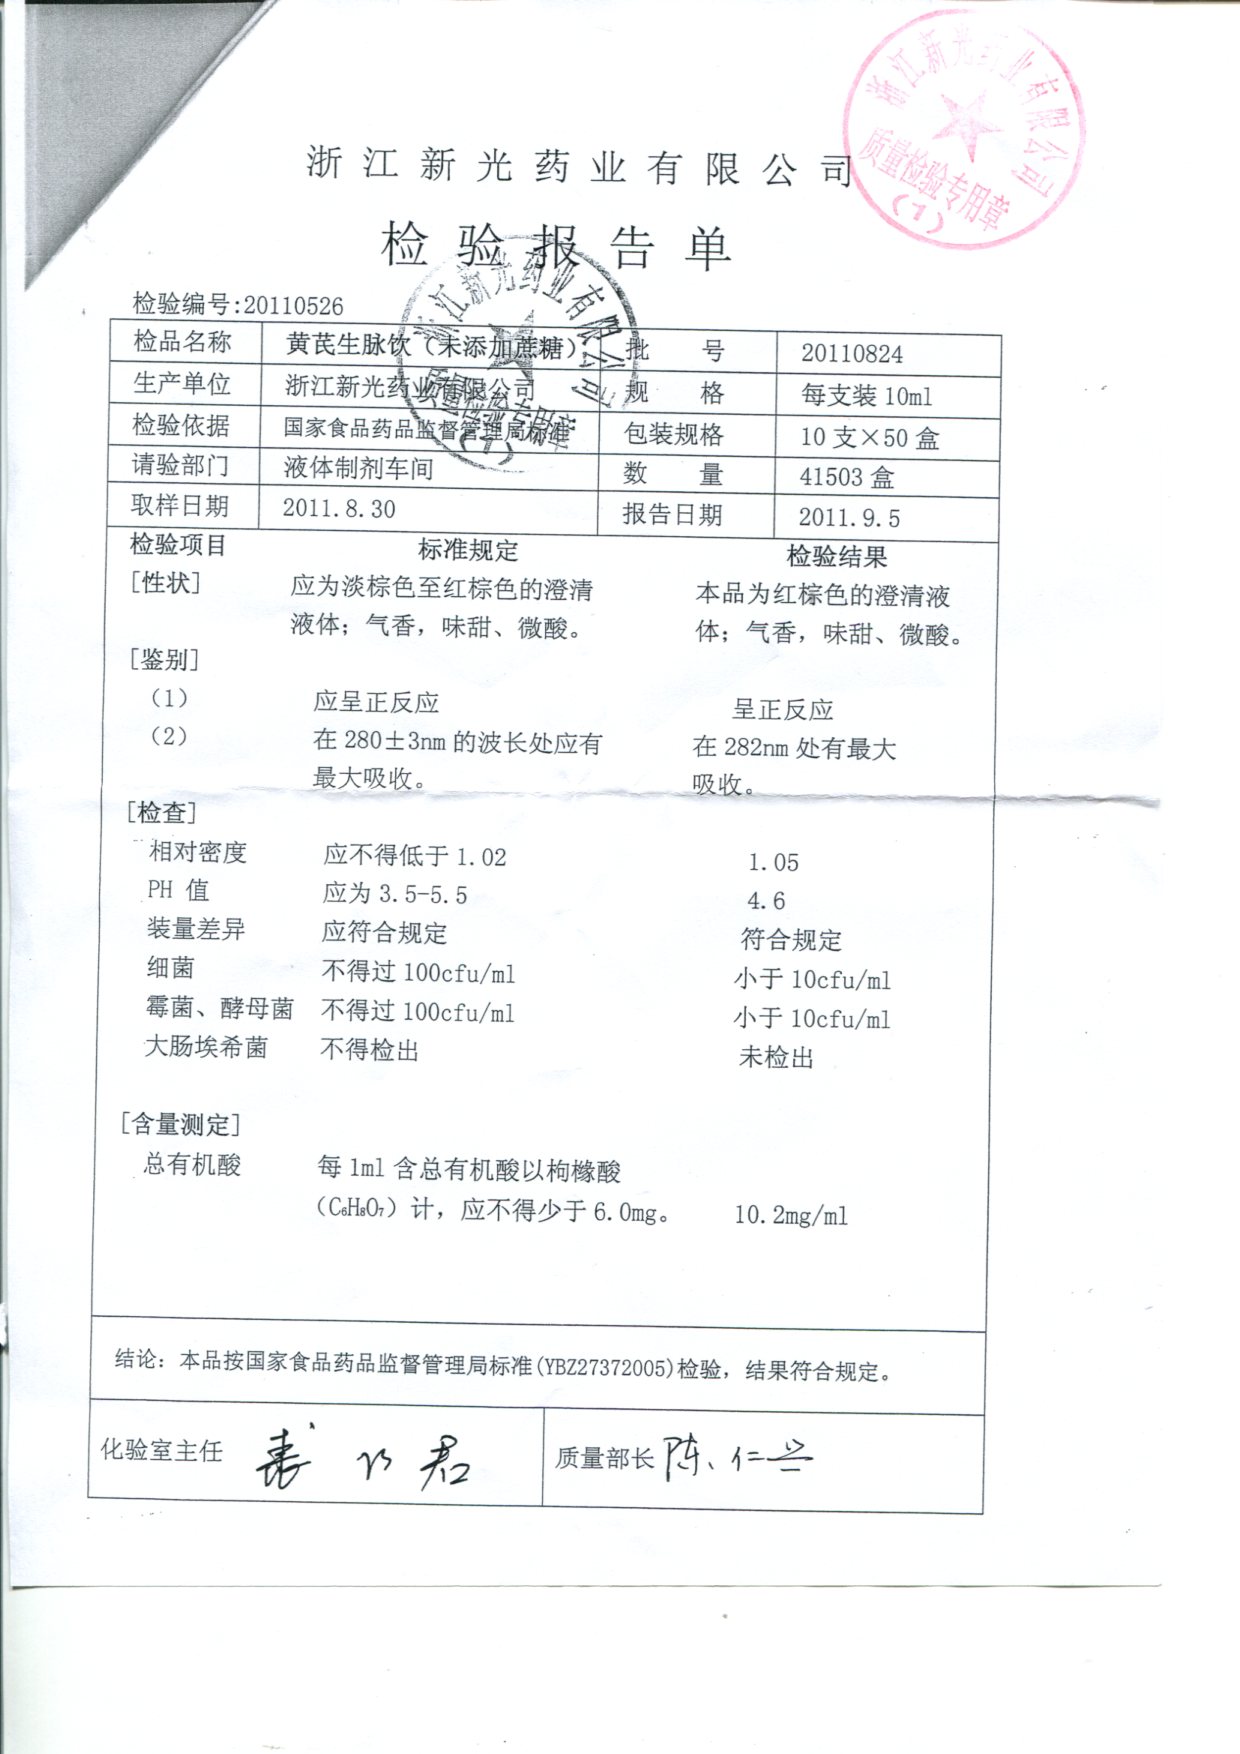 浙江新光药业有限公司
质量检验专用章
(1)
浙江新光药业有限公司
检验报告单
浙江新光药业有限公司
质量检验专用章
(1)
检验编号:20110526
检品名称 黄芪生脉饮（未添加蔗糖） 批 号 20110824
生产单位 浙江新光药业有限公司 规 格 每支装10ml
检验依据 国家食品药品监督管理局标准 包装规格 10支×50盒
请验部门 液体制剂车间 数 量 41503盒
取样日期 2011.8.30 报告日期 2011.9.5
检验项目 标准规定 检验结果
[性状] 应为淡棕色至红棕色的澄清 本品为红棕色的澄清液
液体；气香，味甜、微酸。 体；气香，味甜、微酸。
[鉴别]
（1） 应呈正反应 呈正反应
（2） 在280±3nm的波长处应有 在282nm处有最大
最大吸收。 吸收。
[检查]
相对密度 应不得低于1.02 1.05
PH 值 应为3.5-5.5 4.6
装量差异 应符合规定 符合规定
细菌 不得过100cfu/ml 小于10cfu/ml
霉菌、酵母菌 不得过100cfu/ml 小于10cfu/ml
大肠埃希菌 不得检出 未检出
[含量测定]
总有机酸 每1ml含总有机酸以枸橼酸
（C₆H₈O₇）计，应不得少于6.0mg。 10.2mg/ml
结论：本品按国家食品药品监督管理局标准(YBZ27372005)检验，结果符合规定。
化验室主任 君 质量部长 陈仁兴